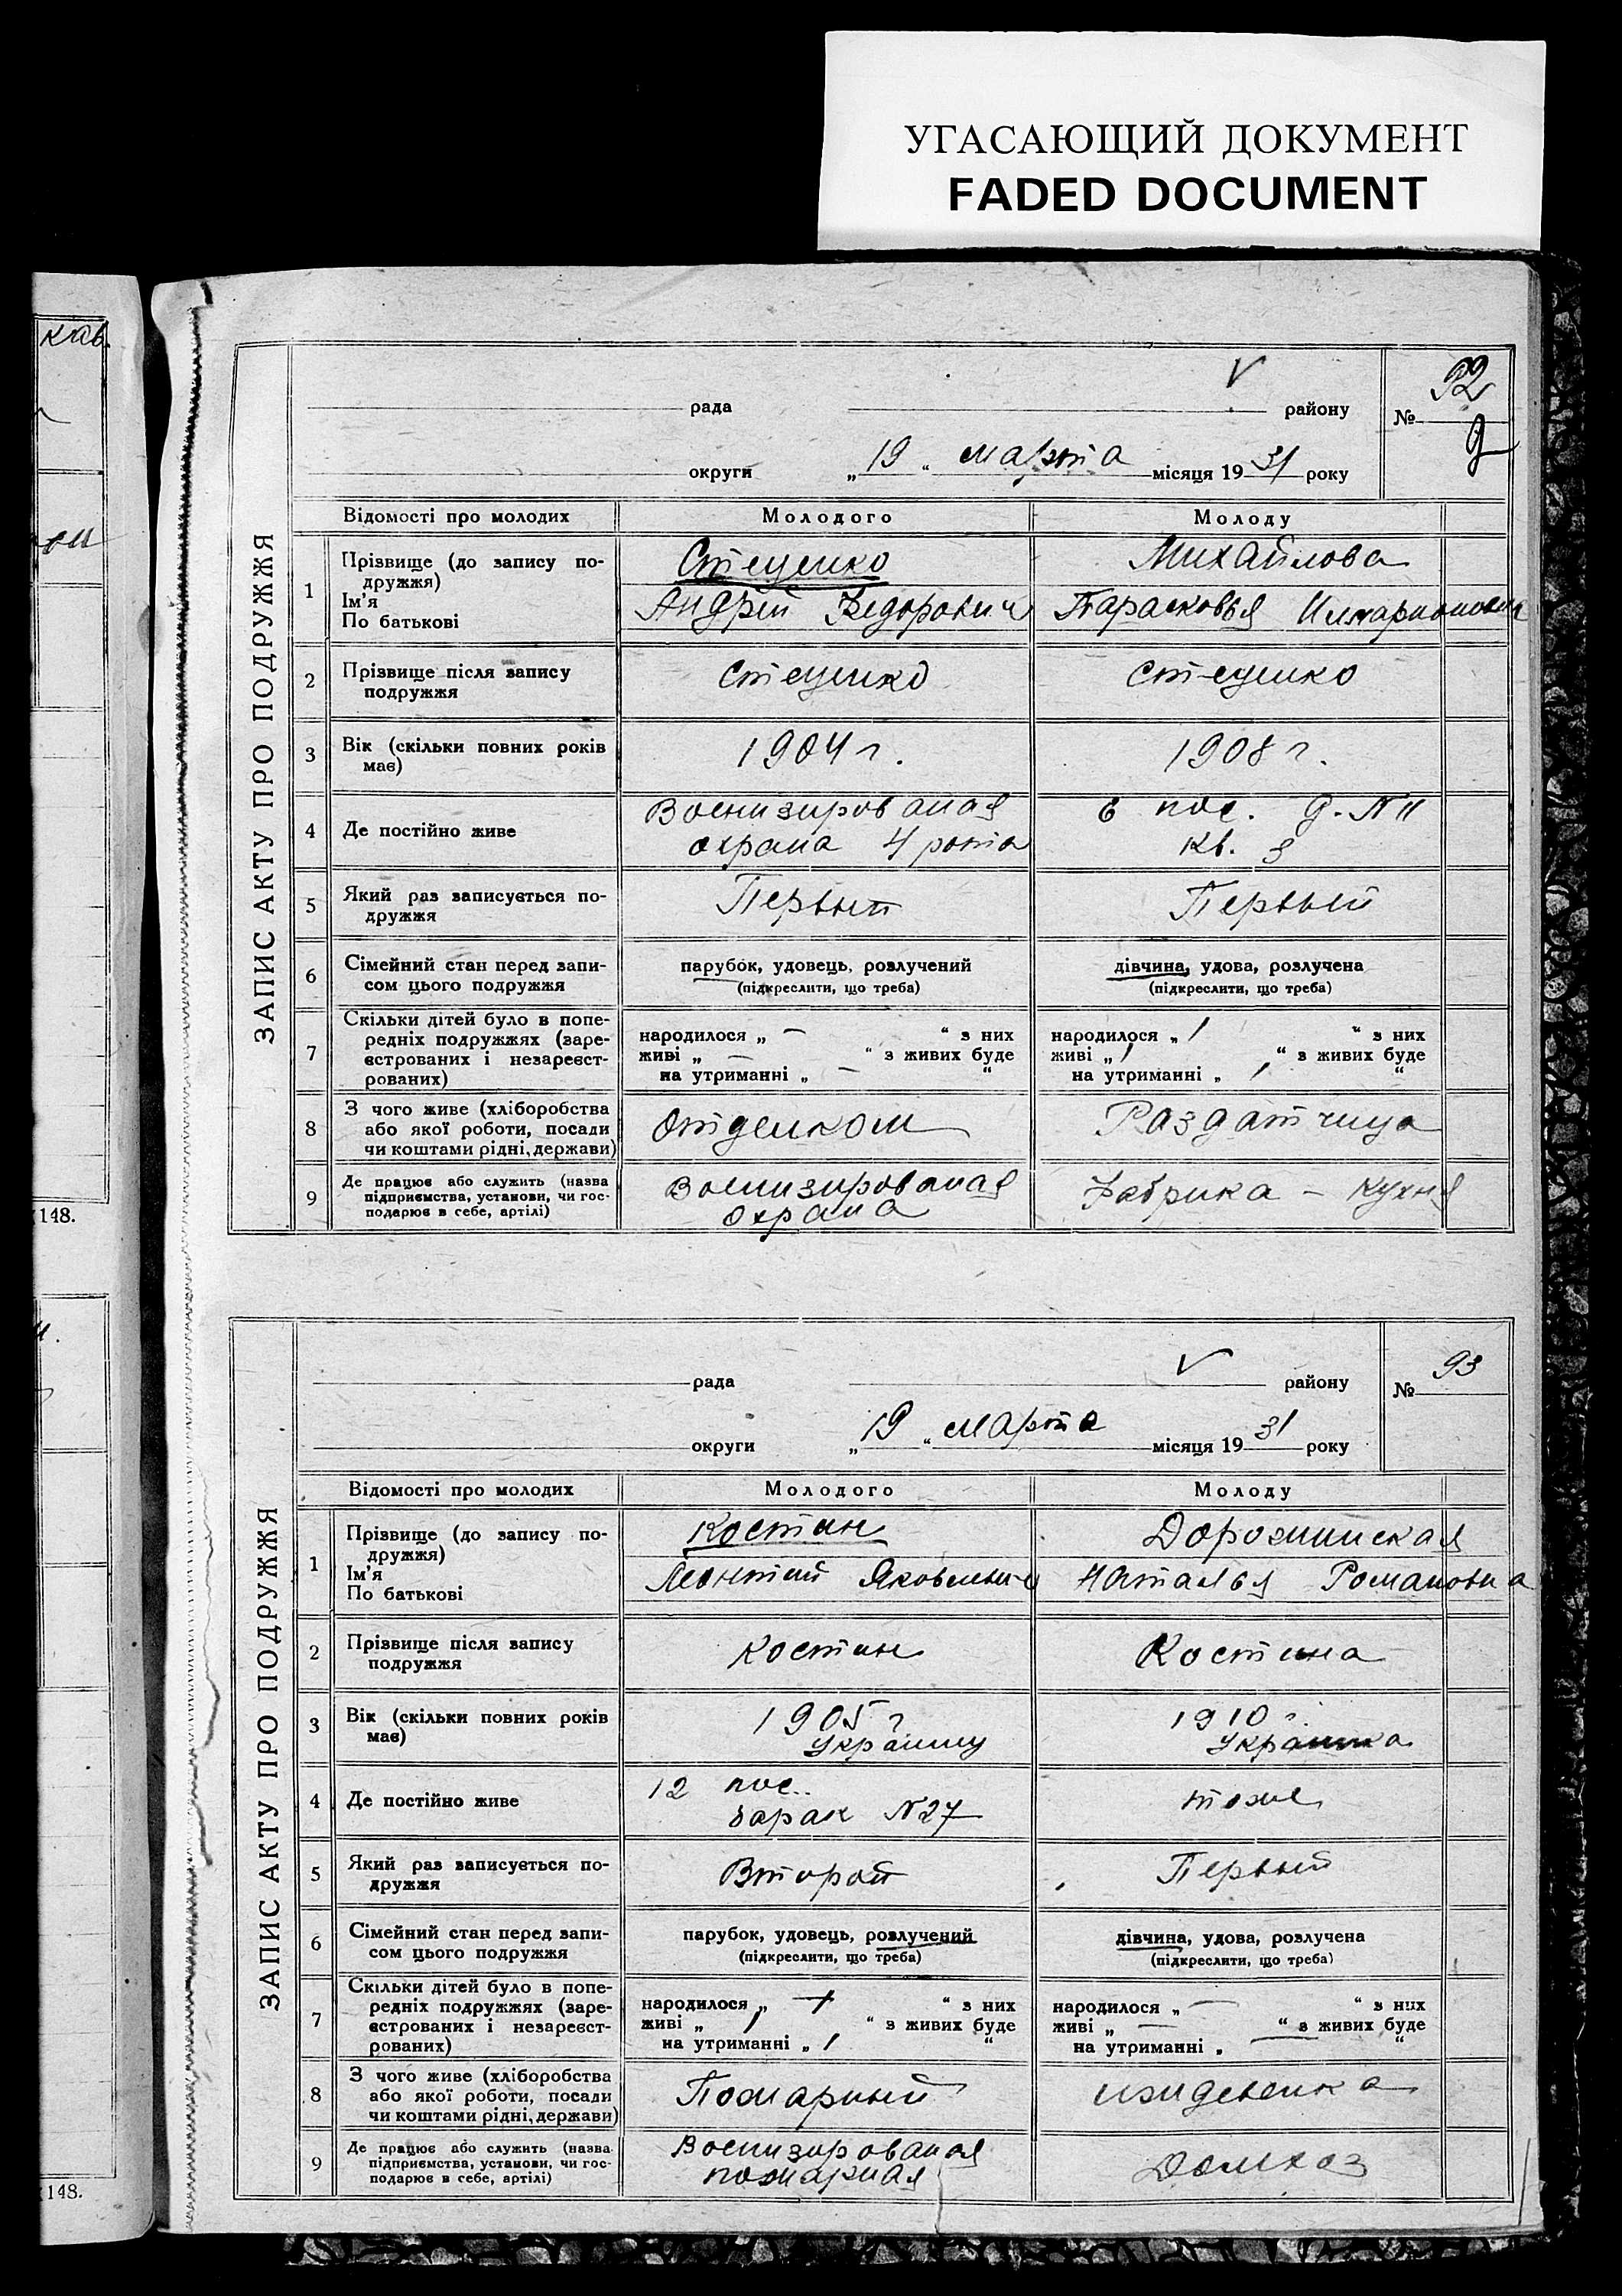 УГАСАЮЩИЙ ДОКУМЕНТ
FADED DOCUMENT
кав.
148.
148.
ЗАПИС АКТУ ПРО ПОДРУЖЖЯ
рада V району № 92
округи „19“ марта місяця 1931 року
Відомості про молодих Молодого Молоду
1 Прізвище (до запису по- Стеценко Михайлова
дружжя)
Ім'я Андрей Федорович Парасковья
По батькові
2 Прізвище після запису Стеценко Стеценко
подружжя
3 Вік (скільки повних років 1904 г. 1908 г.
має)
4 Де постійно живе Военизированая 6 пос. д. N 11
охрана 4 рота кв. 3
5 Який раз записується по- Первый Первый
дружжя
6 Сімейний стан перед запи- парубок, удовець, розлучений дівчина, удова, розлучена
сом цього подружжя (підкреслити, що треба) (підкреслити, що треба)
7 Скільки дітей було в попе-
редніх подружжях (заре- народилося „ — “ з них народилося „ / “ з них
єстрованих і незареєст- живі „ — “ з живих буде живі „ / “ з живих буде
рованих) на утриманні „ — “ на утриманні „ / “
8 З чого живе (хліборобства
або якої роботи, посади Отделком Раздатчица
чи коштами рідні, держави)
9 Де працює або служить (назва Военизированая Фабрика - кухня
підприємства, установи, чи гос- охрана
подарює в себе, артілі)
ЗАПИС АКТУ ПРО ПОДРУЖЖЯ
рада V району № 93
округи „19“ марта місяця 1931 року
Відомості про молодих Молодого Молоду
1 Прізвище (до запису по- Костин Дорожинская
дружжя)
Ім'я Леонтий Яковлевич Наталья Романовна
По батькові
2 Прізвище після запису Костин Костина
подружжя
3 Вік (скільки повних років 1905 г 1910 г.
має)
4 Де постійно живе 12 пос. тоже
барак N 27
5 Який раз записується по- Второй Первый
дружжя
6 Сімейний стан перед запи- парубок, удовець, розлучений дівчина, удова, розлучена
сом цього подружжя (підкреслити, що треба) (підкреслити, що треба)
7 Скільки дітей було в попе-
редніх подружжях (заре- народилося „ 1 “ з них народилося „ — “ з них
єстрованих і незареєст- живі „ / “ з живих буде живі „ — “ з живих буде
рованих) на утриманні „ / “ на утриманні „ — “
8 З чого живе (хліборобства
або якої роботи, посади Пожарный иждевенка
чи коштами рідні, держави)
9 Де працює або служить (назва Военизированая Домхоз
підприємства, установи, чи гос- пожарная
подарює в себе, артілі)